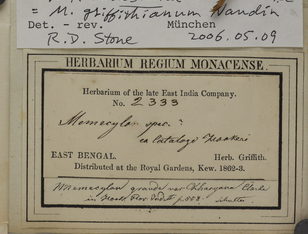 = M. griffithianum Naudin
Det. - rev. München
R.D. Stone 2006.05.09
HERBARIUM REGIUM MONACENSE.
Herbarium of the late East India Company.
No. 2333
Memecylon spec.?
ex Catalogo Hookeri
EAST BENGAL. Herb. Griffith.
Distributed at the Royal Gardens, Kew. 1862-3.
Memecylon grande var Khasyana Clarke
in Hook